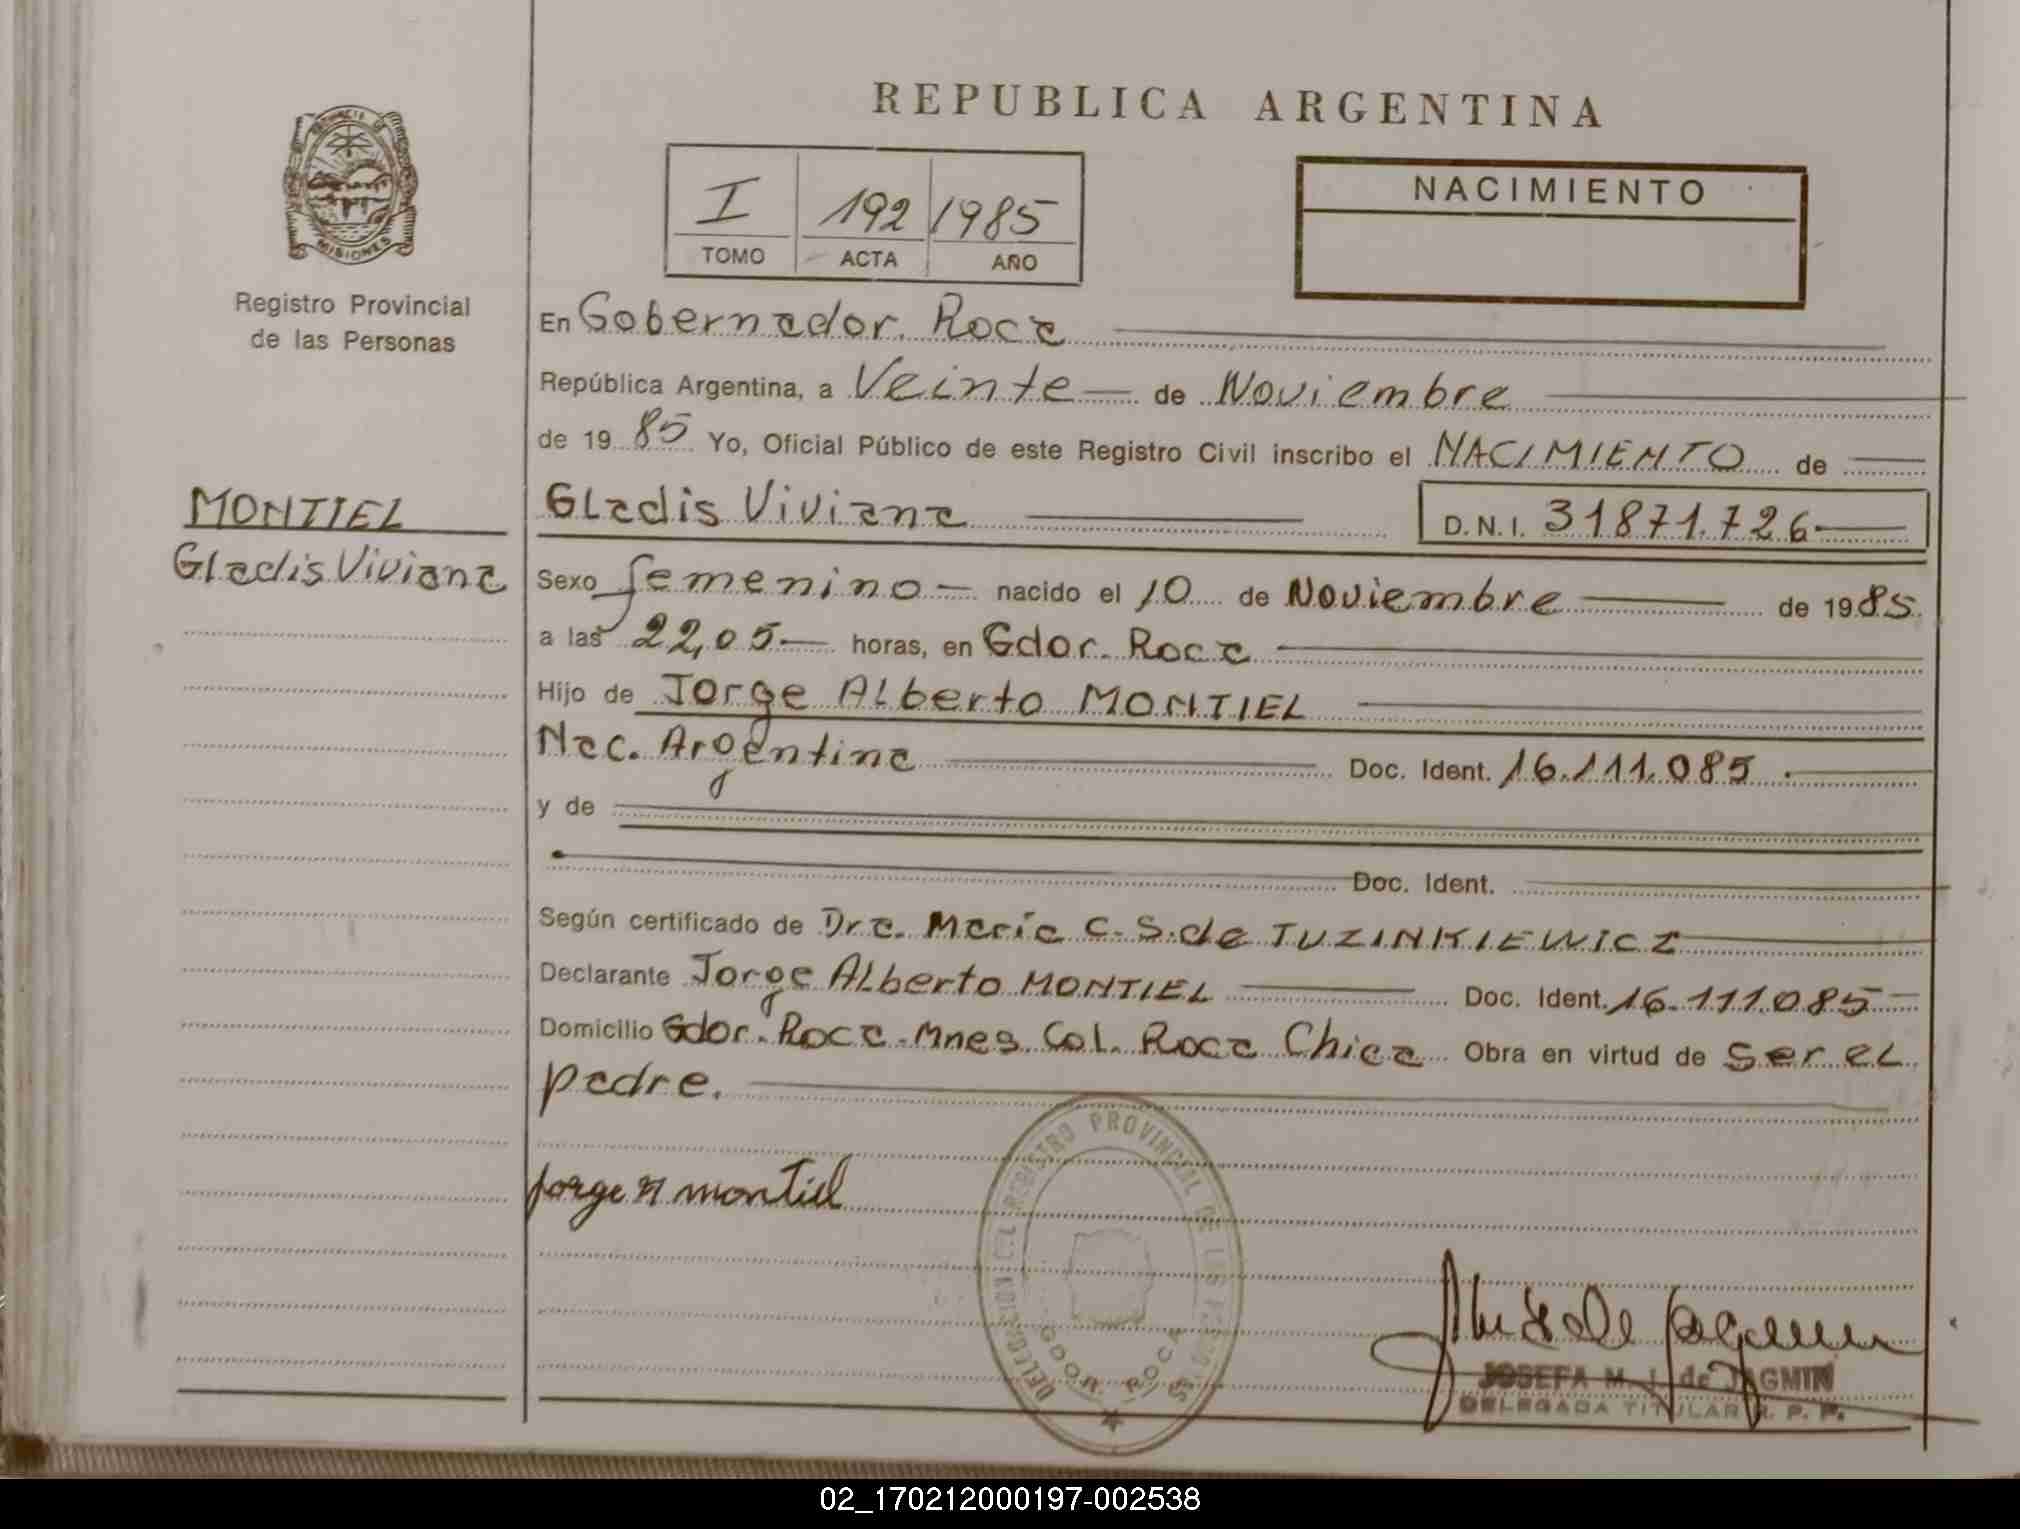 REPUBLICA ARGENTINA
PROVINCIA DE
MISIONES
Registro Provincial
de las Personas
I 192 1985
TOMO ACTA AÑO
NACIMIENTO
En Gobernador Roca
República Argentina, a Veinte de Noviembre
de 1985 Yo, Oficial Público de este Registro Civil inscribo el NACIMIENTO de
MONTIEL
Gladis Viviana
Gladis Viviana D.N.I. 31871.726
Sexo femenino nacido el 10 de Noviembre de 1985
a las 22,05 horas, en Gdor. Roca
Hijo de Jorge Alberto MONTIEL
Nac. Argentina Doc. Ident. 16.111.085
y de
Doc. Ident.
Según certificado de Dra. María C. S. de TUZINKIEWICZ
Declarante Jorge Alberto MONTIEL Doc. Ident. 16.111.085
Domicilio Gdor. Roca - Mnes Col. Roca Chica Obra en virtud de ser el
padre.
Jorge A montiel
REGISTRO PROVINCIAL DE LAS PERSONAS
GDOR. ROCA
JOSEFA M. J. de JAGMIN
DELEGADA TITULAR R. P. P.
02_170212000197-002538